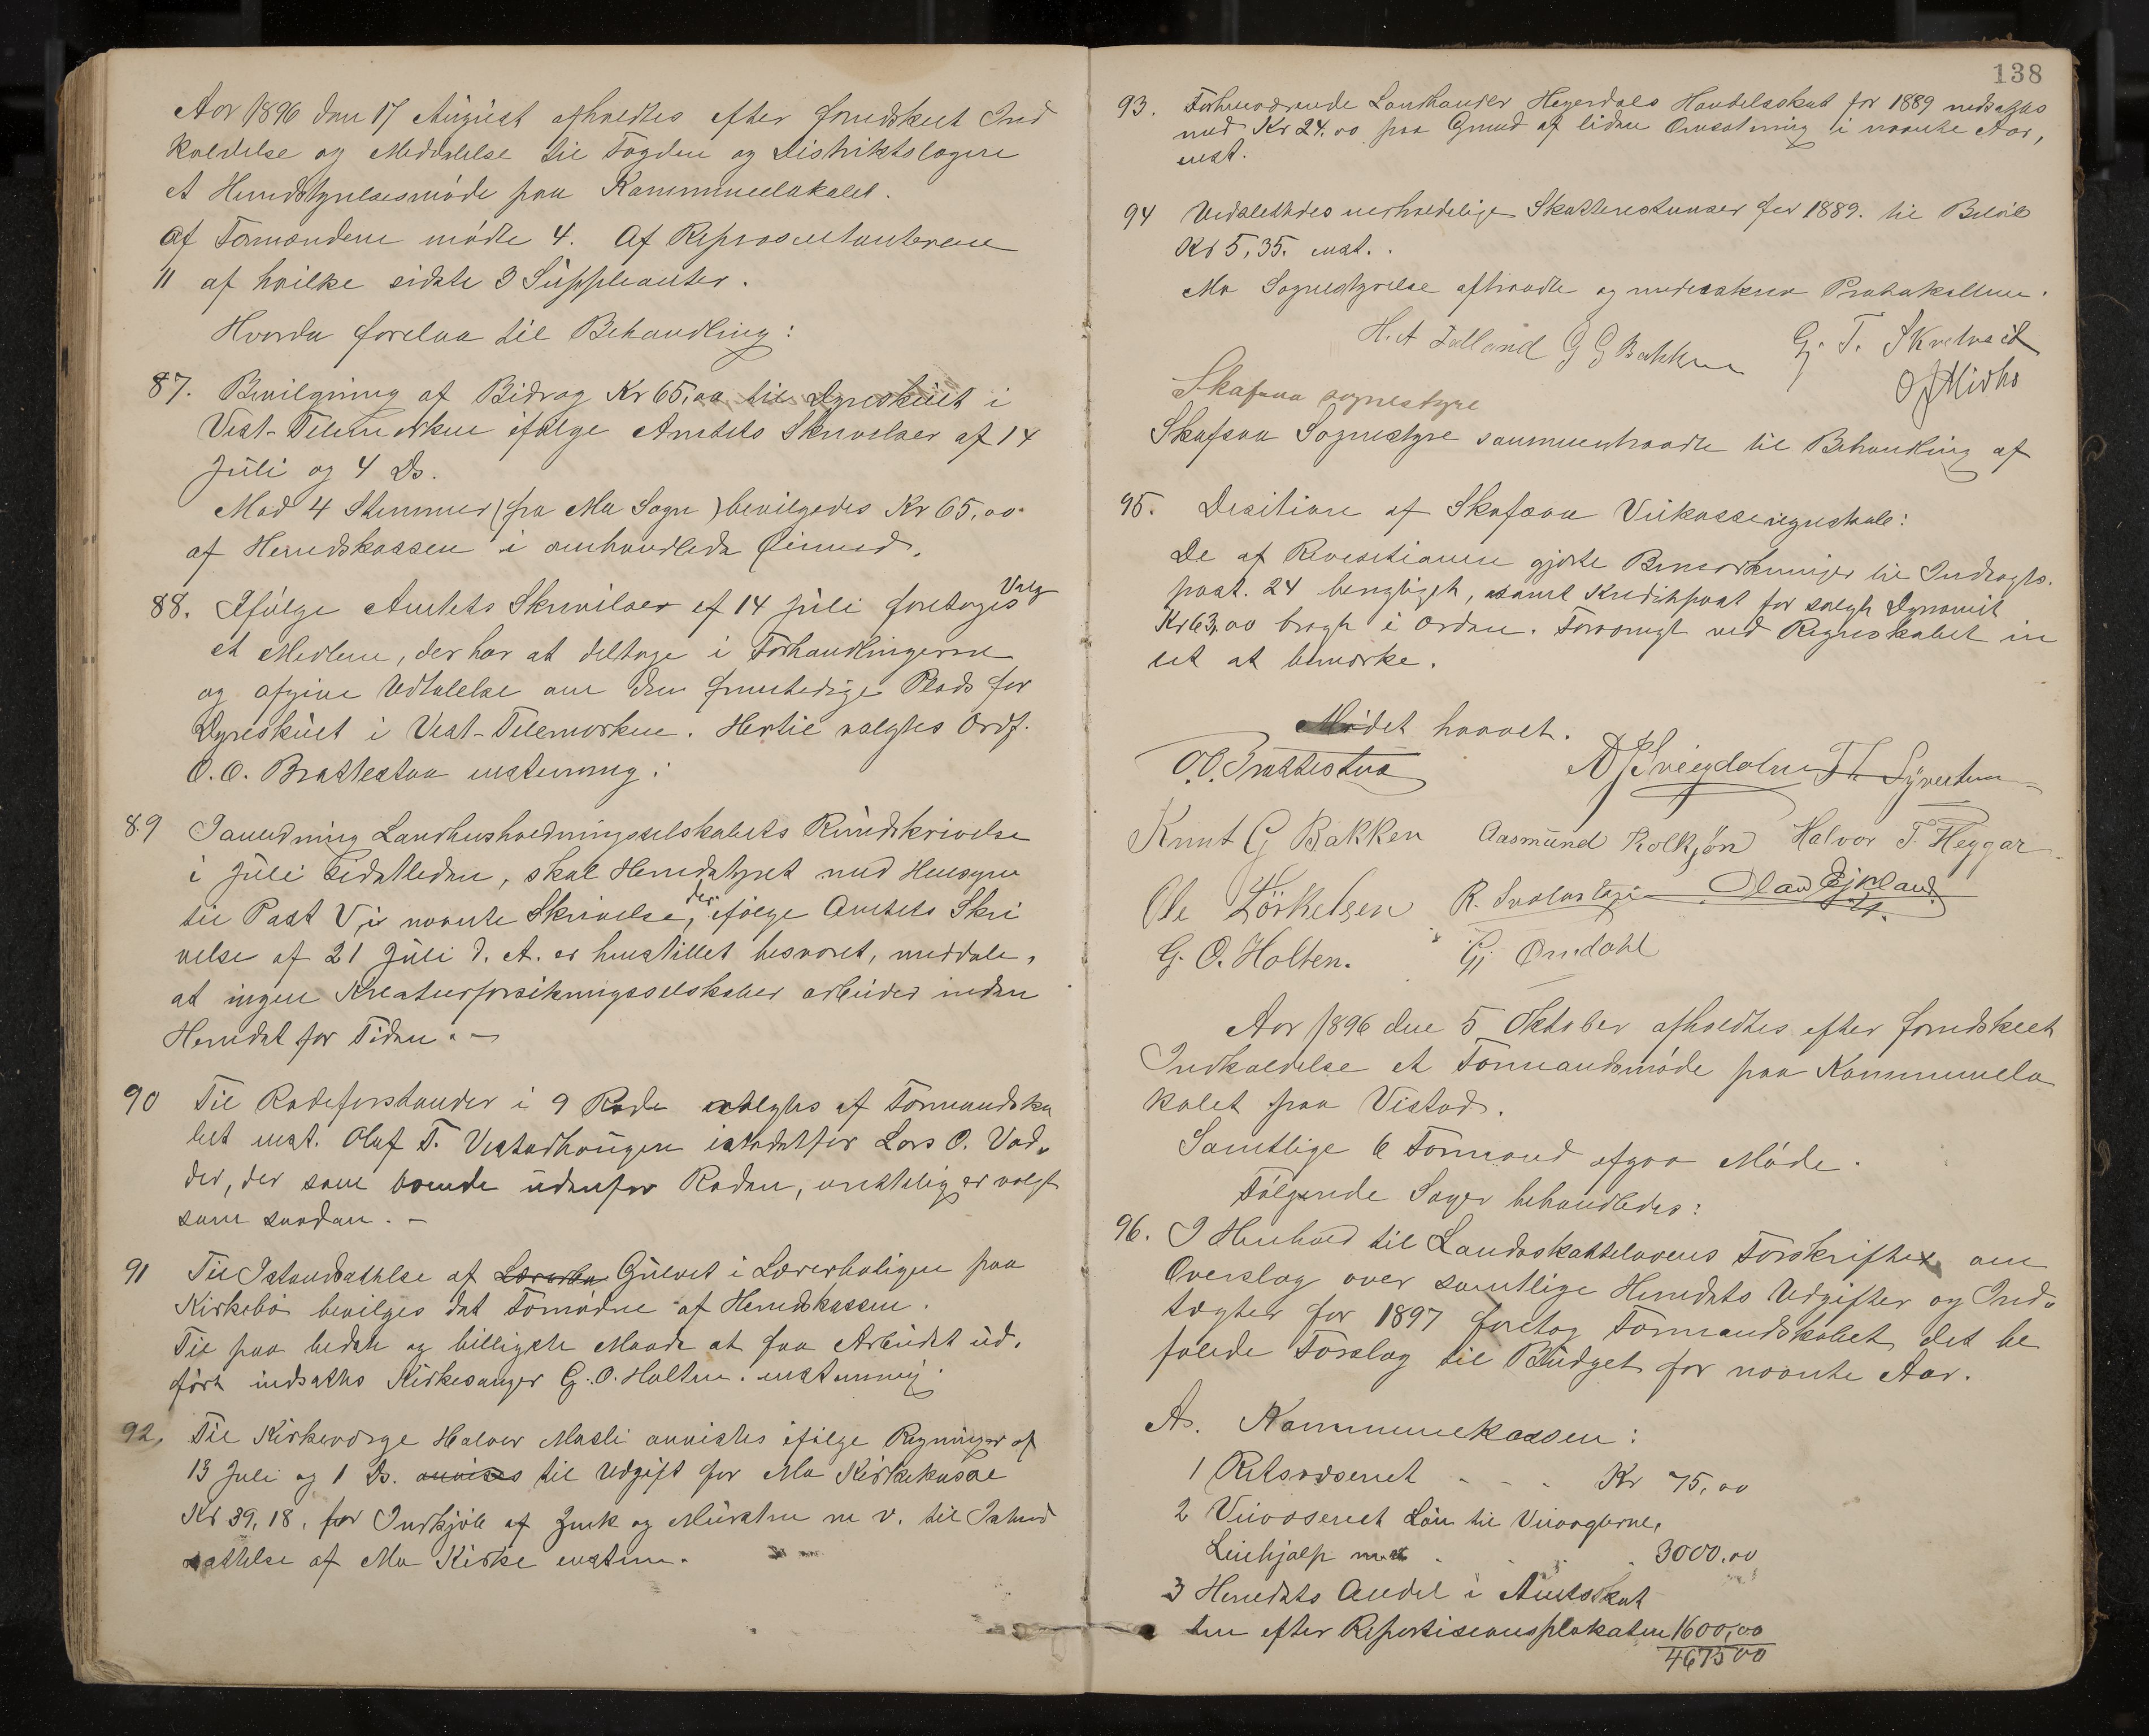 Aar 1896 den 17 August afholdtes efter forudskeet Ind
kaldelse og Meddelelse til Fogden og Distriktslægen
et Herredstyrelsesmøde paa Kommunelokalet.
Af Formændene mødte 4. Af Repræsentanterne
11 af hvilke sidste 3 Suppleanter.
Hvorda forelaa til Behandling:
87. Bevilgning af Bidrag Kr 65,00 til Dyreskuet i
Vest-Telemarken ifølge Amtets Skrivelser af 14
Juli og 4 Ds.
Mod 4 Stemmer (fra Mo Sogn) bevilgedes Kr 65,00
af Herredskassen i omhandlede Øiemed.
88. Ifølge Amtets Skrivelse af 14 Juli foretoges Valg
et Medlem, der har at deltage i Forhandlingerne
og afgive Udtalelse om den fremtidige Plads for
Dyreskuet i Vest-Telemarken. Hertil valgtes Ordf.
O. O. Brattestaa enstemmig.
89 I anledning Landhusholdningsselskabets Rundskrivelse
i Juli sidstleden, skal Herredstyret med Hensyn
til Post V, i nævnte Skrivelse, der ifølge Amtets Skri
velse af 21 Juli d. A. er henstillet besvaret, meddele,
at ingen Kreaturforsikringsselskaber arbeider inden
Herredet for Tiden. –
90 Til Rodeforstander i 9 Rode valgtes af Formandska
bet enst. Oluf T. Vistadhaugen istedetfor Lars O. Vad-
der, der som boende udenfor Roden, urettelig er valgt
som saadan. –
91 Til Istandsættelse af Gulvet i Lærerboligen paa
Kirkebø bevilges det Fornødne af Herredskassen.
Til paa bedste og billigste Maade at faa Arbeidet ud-
ført indsattes Kirkesanger G. O. Holten. enstemmig.
92, Til Kirkeværge Halvor Mosli anvistes ifølge Regninger af
13 Juli og 1 Ds. anvises til Udgift for Mo Kirkekasse
Kr 39,18, for Indkjøb af Zink og Mursten m v. til Istand
sættelse af Mo Kirke enstem.
138
93. Forhenværende Landhandler Hegerdals Handelsskat for 1889 nedsattes
med Kr 24.00 paa Grund af liden Omsætning i nævnte Aar,
enst.
94 Udslettedes uerholdelige Skatterestanser for 1889. til Beløb
Kr 5,35. enst..
Mo Sognestyrelse aftraadte og underskrev Protokollen.
H. A G G Bakken G. T. Skrelvseid
Skafsaa sognestyre
Skafsaa Sognestyre sammentraadte til Behandling af
95. Desition af Skafsaa Veikasseregnskab:
De af Revisionen gjorte Bemærkninger til Indtægts-
post. 24 berigtiget, samt Kreditpost for solgt Dynamit
Kr 63,00 bragt i Orden. Forøvrigt ved Regnskabet in
tet at bemærke.
Mødet hævet.
O. O. Brattestaa
Knut G Bakken Aasmund Rolkjøn Halvor T. Heggar
Ole Torkelsen
G. O. Holten. Gj Omdahl
Aar 1896 den 5 Oktober afholdtes efter forudskeet
Indkaldelse et Formandsmøde paa Kommunelo
kalet paa Vistad.
Samtlige 6 Formænd afgav Møde.
Følgende Sager behandledes:
96. I Henhold til Landsskattelovens Forskrifter om
Overslag over samtlige Herredets Udgifter og Ind-
tægter for 1897 foretog Formandskabet det be
falede Forslag til Budget for nævnte Aar.
A. Kommunekassen:
1 Retsvæsenet - - - Kr 75,00
2 Veivæsenet Løn til Veivogterne,
Leiehjælp m.m. . . . 3000.00
3 Herredets Andel i Amtsskat
ten efter Repartisionsplakaten 1600,00
4675 00